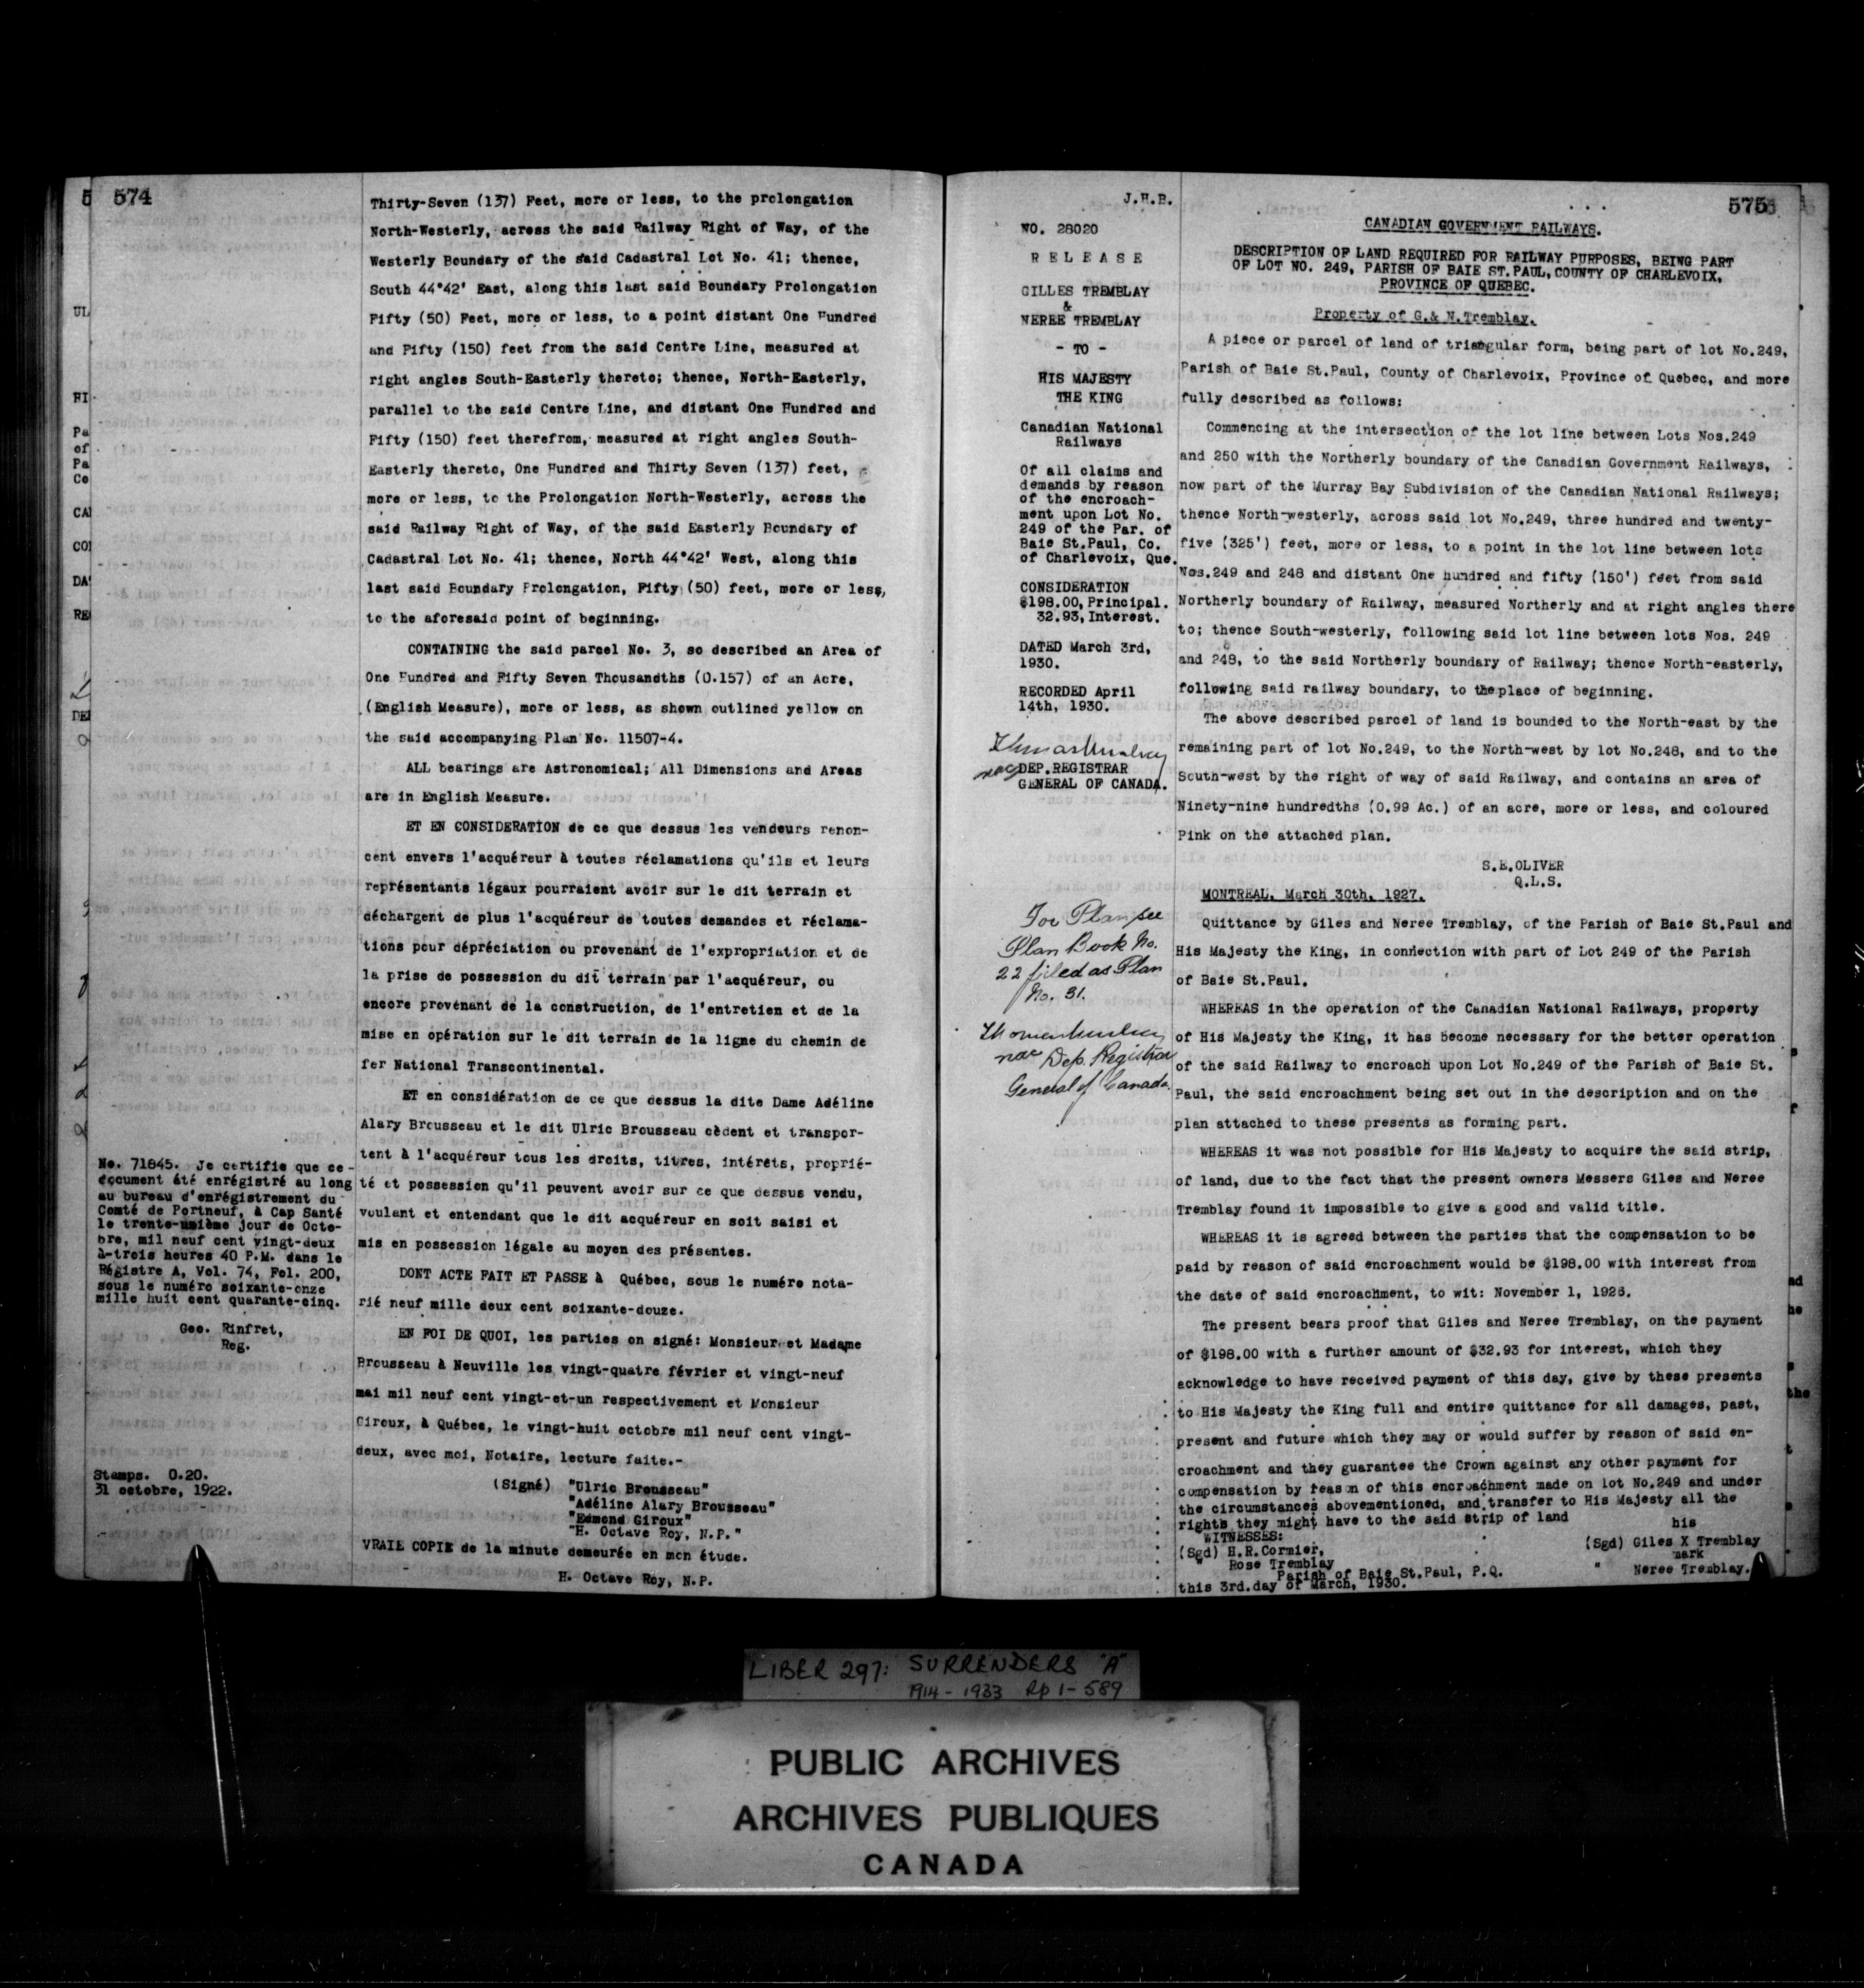 574
Thirty-Seven (137) Feet, more or less, to the prolongation
North-Westerly, across the said Railway Right of Way, of the
Westerly Boundary of the said Cadastral Lot No. 41; thence,
South 44°42' East, along this last said Boundary Prolongation
Fifty (50) Feet, more or less, to a point distant One Hundred
and Fifty (150) feet from the said Centre Line, measured at
right angles South-Easterly thereto; thence, North-Easterly,
parallel to the said Centre Line, and distant One Hundred and
Fifty (150) feet therefrom, measured at right angles South-
Easterly thereto, One Hundred and Thirty Seven (137) feet,
more or less, to the Prolongation North-Westerly, across the
said Railway Right of Way, of the said Easterly Boundary of
Cadastral Lot No. 41; thence, North 44°42' West, along this
last said Boundary Prolongation, Fifty (50) feet, more or less,
to the aforesaid point of beginning.
CONTAINING the said parcel No. 3, so described an Area of
One Hundred and Fifty Seven Thousandths (0.157) of an Acre,
(English Measure), more or less, as shown outlined yellow on
the said accompanying Plan No. 11507-4.
ALL bearings are Astronomical; All Dimensions and Areas
are in English Measure.
ET EN CONSIDERATION de ce que dessus les vendeurs renon-
cent envers l'acquéreur à toutes réclamations qu'ils et leurs
représentants légaux pourraient avoir sur le dit terrain et
déchargent de plus l'acquéreur de toutes demandes et réclama-
tions pour dépréciation ou provenant de l'expropriation et de
la prise de possession du dit terrain par l'acquéreur, ou
encore provenant de la construction, de l'entretien et de la
mise en opération sur le dit terrain de la ligne du chemin de
fer National Transcontinental.
ET en considération de ce que dessus la dite Dame Adéline
Alary Brousseau et le dit Ulric Brousseau cèdent et transpor-
tent à l'acquéreur tous les droits, titres, intérêts, proprié-
té et possession qu'il peuvent avoir sur ce que dessus vendu,
voulant et entendant que le dit acquéreur en soit saisi et
mis en possession légale au moyen des présentes.
DONT ACTE FAIT ET PASSE à Québec, sous le numéro nota-
rié neuf mille deux cent soixante-douze.
EN FOI DE QUOI, les parties on signé: Monsieur et Madame
Brousseau à Neuville les vingt-quatre février et vingt-neuf
mai mil neuf cent vingt-et-un respectivement et Monsieur
Giroux, à Québec, le vingt-huit octobre mil neuf cent vingt-
deux, avec moi, Notaire, lecture faite.-
(Signé) "Ulric Brousseau"
"Adéline Alary Brousseau"
"Edmond Giroux"
"H. Octave Roy, N.P."
VRAIE COPIE de la minute demeurée en mon étude.
H. Octave Roy, N.P.
No. 71845. Je certifie que ce
document été enrégistré au long
au bureau d'enrégistrement du
Comté de Portneuf, à Cap Santé
le trente-unième jour de Octo-
bre, mil neuf cent vingt-deux
à-trois heures 40 P.M. dans le
Régistre A, Vol. 74, Fol. 200,
sous le numéro soixante-onze
mille huit cent quarante-cinq.
Geo. Rinfret,
Reg.
Stamps. 0.20.
31 octobre, 1922.
J.H.B.
NO. 28020
RELEASE
GILLES TREMBLAY
&
NEREE TREMBLAY
- TO -
HIS MAJESTY
THE KING
Canadian National
Railways
Of all claims and
demands by reason
of the encroach-
ment upon Lot No.
249 of the Par. of
Baie St.Paul, Co.
of Charlevoix, Que.
CONSIDERATION
$198.00, Principal.
32.93, Interest.
DATED March 3rd,
1930.
RECORDED April
14th, 1930.
DEP.REGISTRAR
GENERAL OF CANADA.
For Plan see
Plan Book No.
22 filed as Plan
No. 31.
Dep. Registrar
General of Canada.
575
CANADIAN GOVERNMENT RAILWAYS.
DESCRIPTION OF LAND REQUIRED FOR RAILWAY PURPOSES, BEING PART
OF LOT NO. 249, PARISH OF BAIE ST.PAUL, COUNTY OF CHARLEVOIX,
PROVINCE OF QUEBEC.
Property of G.& N.Tremblay.
A piece or parcel of land of triangular form, being part of lot No.249,
Parish of Baie St.Paul, County of Charlevoix, Province of Quebec, and more
fully described as follows:
Commencing at the intersection of the lot line between Lots Nos.249
and 250 with the Northerly boundary of the Canadian Government Railways,
now part of the Murray Bay Subdivision of the Canadian National Railways;
thence North-westerly, across said lot No.249, three hundred and twenty-
five (325') feet, more or less, to a point in the lot line between lots
Nos.249 and 248 and distant One hundred and fifty (150') feet from said
Northerly boundary of Railway, measured Northerly and at right angles there
to; thence South-westerly, following said lot line between lots Nos. 249
and 248, to the said Northerly boundary of Railway; thence North-easterly,
following said railway boundary, to the place of beginning.
The above described parcel of land is bounded to the North-east by the
remaining part of lot No.249, to the North-west by lot No.248, and to the
South-west by the right of way of said Railway, and contains an area of
Ninety-nine hundredths (0.99 Ac.) of an acre, more or less, and coloured
Pink on the attached plan.
S.E.OLIVER
Q.L.S.
MONTREAL, March 30th, 1927.
Quittance by Giles and Neree Tremblay, of the Parish of Baie St.Paul and
His Majesty the King, in connection with part of Lot 249 of the Parish
of Baie St.Paul.
WHEREAS in the operation of the Canadian National Railways, property
of His Majesty the King, it has become necessary for the better operation
of the said Railway to encroach upon Lot No.249 of the Parish of Baie St.
Paul, the said encroachment being set out in the description and on the
plan attached to these presents as forming part.
WHEREAS it was not possible for His Majesty to acquire the said strip,
of land, due to the fact that the present owners Messers Giles and Neree
Tremblay found it impossible to give a good and valid title.
WHEREAS it is agreed between the parties that the compensation to be
paid by reason of said encroachment would be $198.00 with interest from
the date of said encroachment, to wit: November 1, 1926.
The present bears proof that Giles and Neree Tremblay, on the payment
of $198.00 with a further amount of $32.93 for interest, which they
acknowledge to have received payment of this day, give by these presents
to His Majesty the King full and entire quittance for all damages, past,
present and future which they may or would suffer by reason of said en-
croachment and they guarantee the Crown against any other payment for
compensation by reason of this encroachment made on lot No.249 and under
the circumstances abovementioned, and transfer to His Majesty all the
rights they might have to the said strip of land
his
WITNESSES:
(Sgd) H.R.Cormier, (Sgd) Giles X Tremblay
mark
" Rose Tremblay " Neree Tremblay.
Parish of Baie St.Paul, P.Q.
this 3rd.day of March, 1930.
LIBER 297: SURRENDERS "A"
1914 - 1933 Rp 1 - 589
PUBLIC ARCHIVES
ARCHIVES PUBLIQUES
CANADA